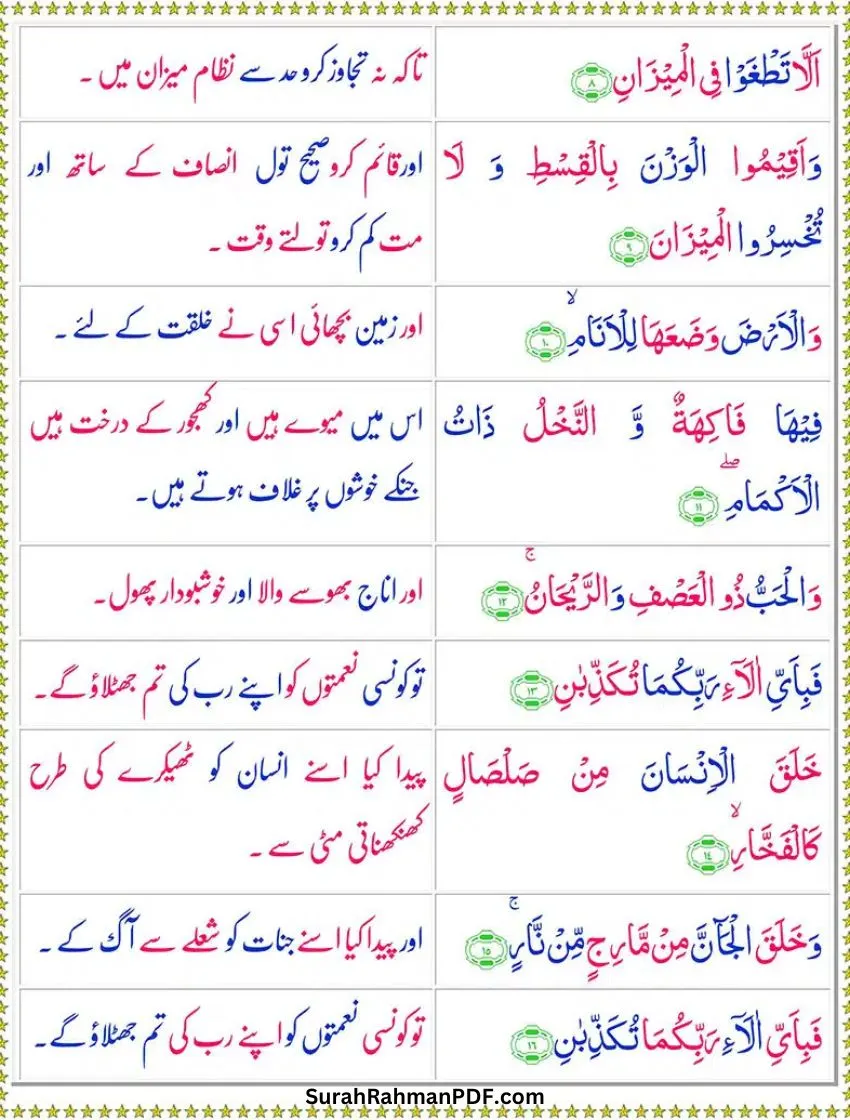 اَلَّا تَطْغَوْا فِی الْمِیْزَانِ ۝۸
تاکہ نہ تجاوز کرو حد سے نظام میزان میں ۔
وَ اَقِیْمُوا الْوَزْنَ بِالْقِسْطِ وَ لَا
تُخْسِرُوا الْمِیْزَانَ ۝۹
اور قائم کرو صحیح تول انصاف کے ساتھ اور
مت کم کرو تولتے وقت ۔
وَ الْاَرْضَ وَضَعَهَا لِلْاَنَامِۙ ۝۱۰
اور زمین بچھائی اسی نے خلقت کے لئے ۔
فِیْهَا فَاكِهَةٌ وَّ النَّخْلُ ذَاتُ
الْاَكْمَامِۖ ۝۱۱
اس میں میوے ہیں اور کھجور کے درخت ہیں
جنکے خوشوں پر غلاف ہوتے ہیں۔
وَ الْحَبُّ ذُو الْعَصْفِ وَ الرَّیْحَانُۚ ۝۱۲
اور اناج بھوسے والا اور خوشبودار پھول۔
فَبِاَیِّ اٰلَآءِ رَبِّكُمَا تُكَذِّبٰنِ ۝۱۳
تو کونسی نعمتوں کو اپنے رب کی تم جھٹلاؤ گے۔
خَلَقَ الْاِنْسَانَ مِنْ صَلْصَالٍ
كَالْفَخَّارِۙ ۝۱۴
پیدا کیا اسنے انسان کو ٹھیکرے کی طرح
کھنکھناتی مٹی سے ۔
وَ خَلَقَ الْجَآنَّ مِنْ مَّارِجٍ مِّنْ نَّارٍۚ ۝۱۵
اور پیدا کیا اسنے جنات کو شعلے سے آگ کے ۔
فَبِاَیِّ اٰلَآءِ رَبِّكُمَا تُكَذِّبٰنِ ۝۱۶
تو کونسی نعمتوں کو اپنے رب کی تم جھٹلاؤ گے۔
SurahRahmanPDF.com